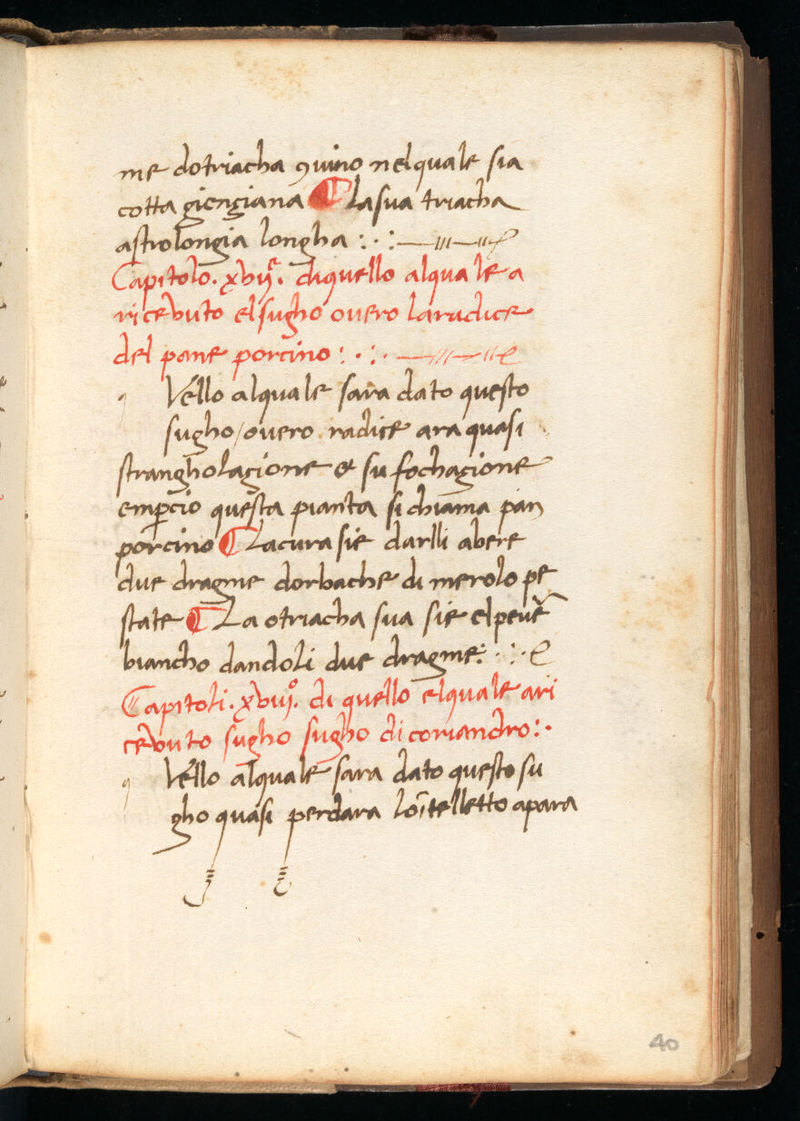 me dotriacha 9uino nelquale sia
cotta giengiana ¶ Lasua triacha
astrolongia longha :·:
Capitolo. xvij.ª diquello alquale a
ricevuto elsugho overo laradice
del pane porcino :·:·
q Vello alquale sara dato questo
sugho / overo radice ara quasi
strangholagione et su fochagione
emꝑcio questa pianta si chiama pan
porcino ¶ Lacura sie darlli abere
due dragme dorbache di merolo pe
state ¶ La otriacha sua sie elpeve
biancho dandoli due dragme: ·:·
Capitoli. xviij.º di quello elquale ari
cevuto sugho sugho di coriandro:·
q Vello alquale sara dato questo su
gho quasi perdara loītelletto apara
40